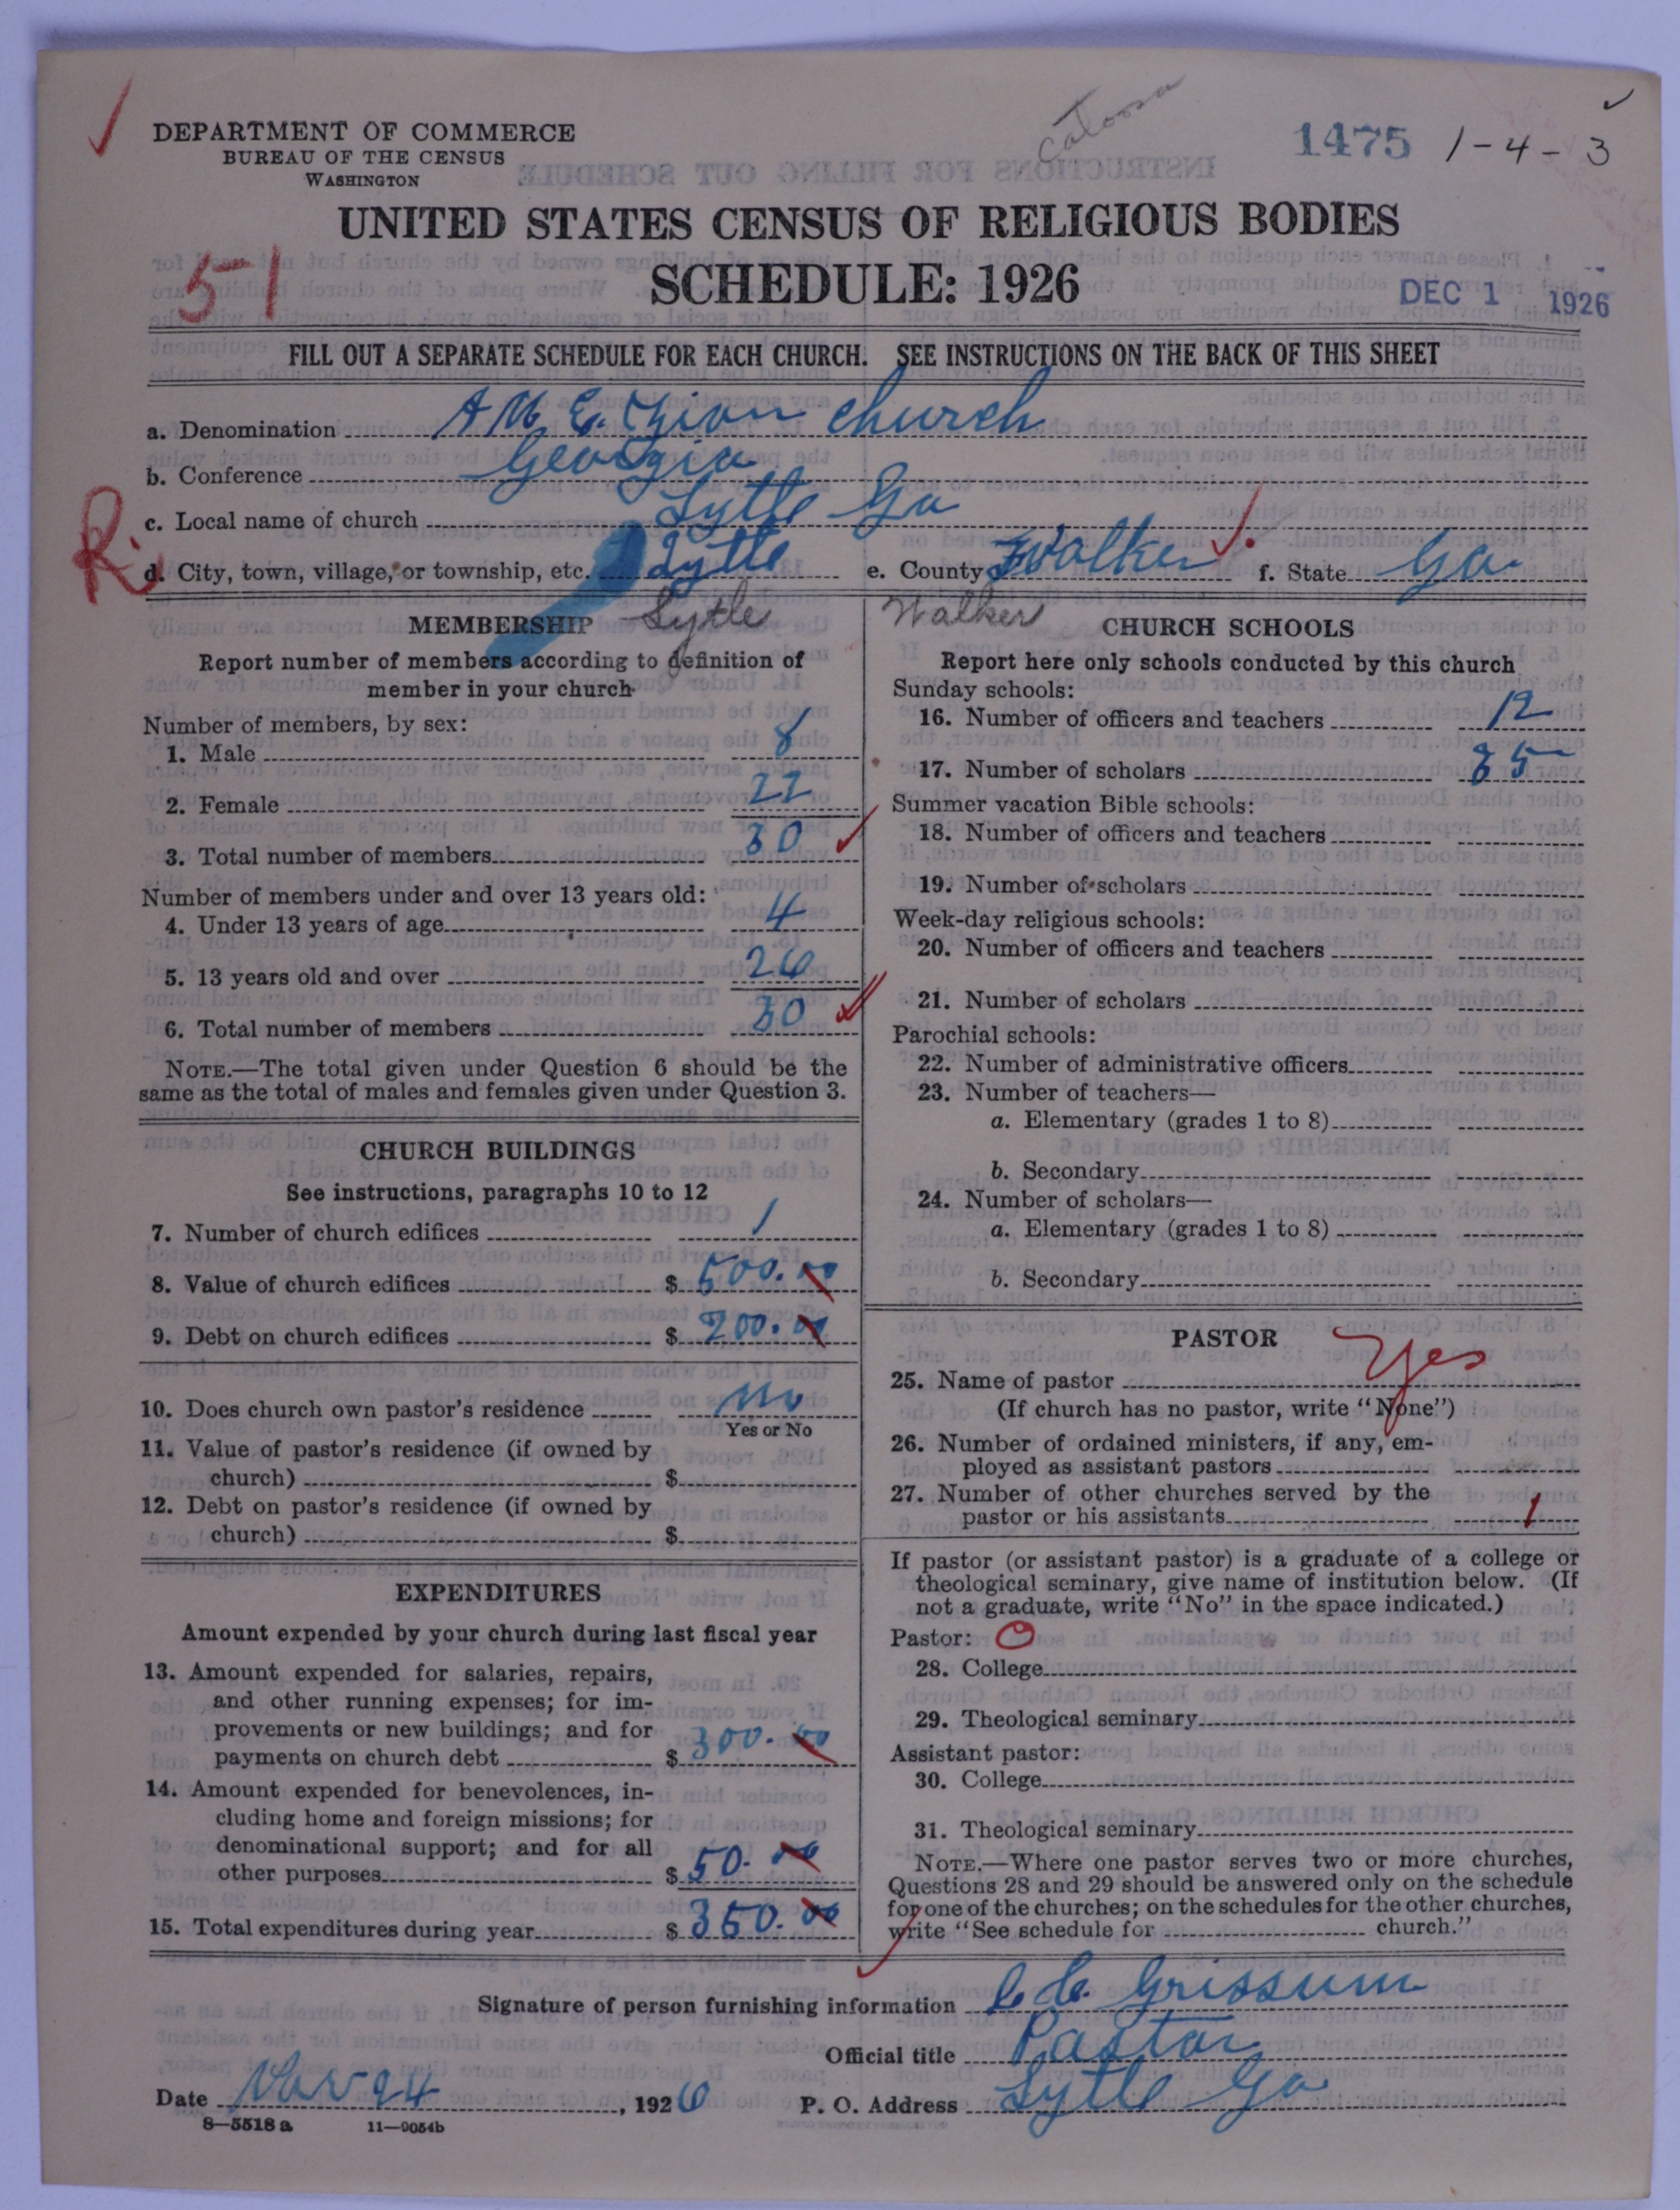 Catoosa
DEPARTMENT OF COMMERCE
BUREAU OF THE CENSUS
WASHINGTON
1475 1-4-3
UNITED STATES CENSUS OF RELIGIOUS BODIES
51
SCHEDULE: 1926
DEC 1 1926
FILL OUT A SEPARATE SCHEDULE FOR EACH CHURCH. SEE INSTRUCTIONS ON THE BACK OF THIS SHEET
a. Denomination A M. E. Zion church
b. Conference Georgia
c. Local name of church Lytle Ga
R.
d. City, town, village, or township, etc. Lytle e. County Walker f. State Ga.
MEMBERSHIP Lytle
Report number of members according to definition of
member in your church
Number of members, by sex:
1. Male 8
2. Female 22
3. Total number of members 30
Number of members under and over 13 years old:
4. Under 13 years of age 4
5. 13 years old and over 26
6. Total number of members 30
NOTE.—The total given under Question 6 should be the
same as the total of males and females given under Question 3.
CHURCH BUILDINGS
See instructions, paragraphs 10 to 12
7. Number of church edifices 1
8. Value of church edifices $ 500.00
9. Debt on church edifices $ 200.00
10. Does church own pastor's residence no
Yes or No
11. Value of pastor's residence (if owned by
church) $
12. Debt on pastor's residence (if owned by
church) $
EXPENDITURES
Amount expended by your church during last fiscal year
13. Amount expended for salaries, repairs,
and other running expenses; for im-
provements or new buildings; and for
payments on church debt $ 300.00
14. Amount expended for benevolences, in-
cluding home and foreign missions; for
denominational support; and for all
other purposes $ 50.00
15. Total expenditures during year $ 350.00
Walker
CHURCH SCHOOLS
Report here only schools conducted by this church
Sunday schools:
16. Number of officers and teachers 12
17. Number of scholars 35
Summer vacation Bible schools:
18. Number of officers and teachers
19. Number of scholars
Week-day religious schools:
20. Number of officers and teachers
21. Number of scholars
Parochial schools:
22. Number of administrative officers
23. Number of teachers—
a. Elementary (grades 1 to 8)
b. Secondary
24. Number of scholars—
a. Elementary (grades 1 to 8)
b. Secondary
PASTOR
25. Name of pastor Yes
(If church has no pastor, write "None")
26. Number of ordained ministers, if any, em-
ployed as assistant pastors
27. Number of other churches served by the
pastor or his assistants 1
If pastor (or assistant pastor) is a graduate of a college or
theological seminary, give name of institution below. (If
not a graduate, write "No" in the space indicated.)
Pastor: O
28. College
29. Theological seminary
Assistant pastor:
30. College
31. Theological seminary
NOTE.—Where one pastor serves two or more churches,
Questions 28 and 29 should be answered only on the schedule
for one of the churches; on the schedules for the other churches,
write "See schedule for church."
Signature of person furnishing information C. C. Grissum
Official title Pastor
Date Nov 24, 1926 P. O. Address Lytle Ga
8—5518 a 11—9054b